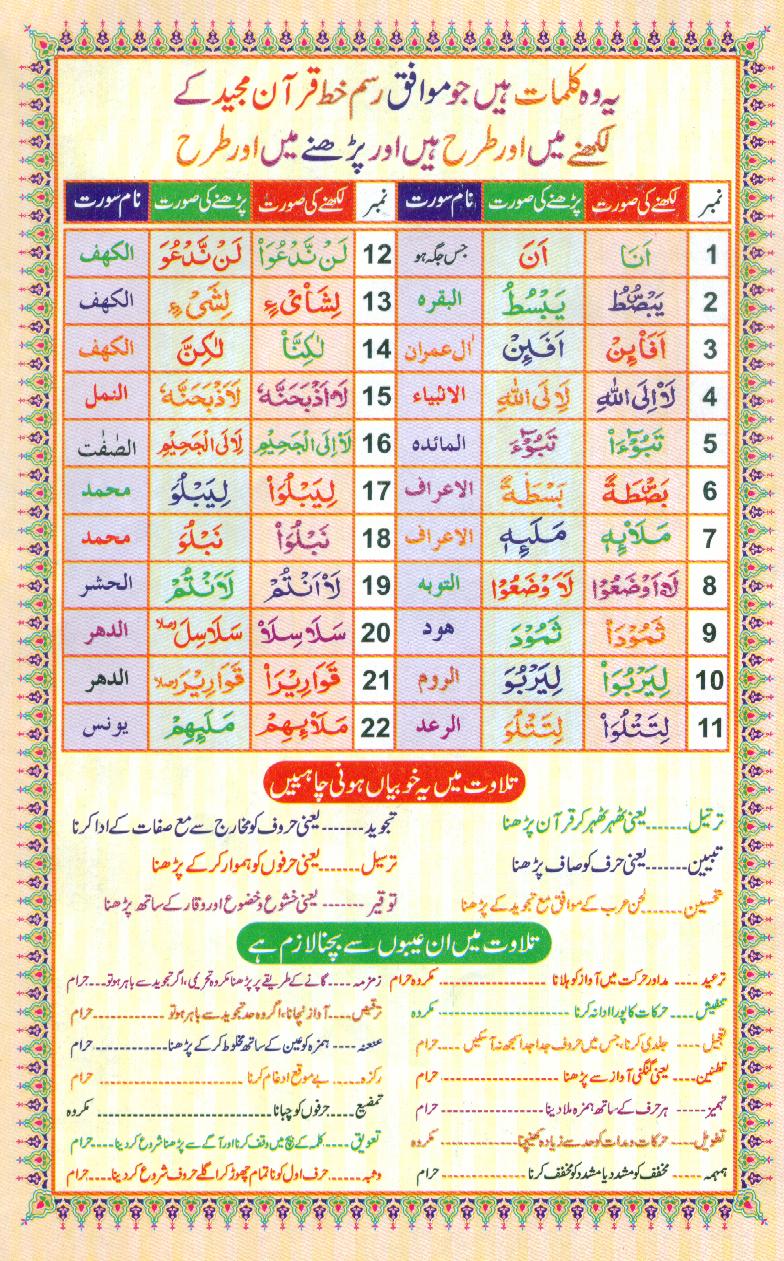 یہ وہ کلمات ہیں جو موافق رسم خط قرآن مجید کے
لکھنے میں اور طرح ہیں اور پڑھنے میں اور طرح
نمبر لکھنے کی صورت پڑھنے کی صورت نام سورت نمبر لکھنے کی صورت پڑھنے کی صورت نام سورت
1 اَنَا اَنَ جس جگہ ہو 12 لَنْ نَّدْعُوَا۟ لَنْ نَّدْعُوَ الکھف
2 یَبْصُۜطُ یَبْسُطُ البقرہ 13 لِشَا۟یْءٍ لِشَیْءٍ الکھف
3 اَفَا۟ئِنْ اَفَئِنْ اٰل عمران 14 لٰكِنَّا۟ لٰكِنَّ الکھف
4 لَا۟اِلَى اللهِ لَاِلَى اللهِ الانبیاء 15 لَا۟اَذْبَحَنَّهٗ لَاَذْبَحَنَّهٗ النمل
5 تَبُوْٓءَا۟ تَبُوْٓءَ المائدہ 16 لَا۟اِلَى الْجَحِيْمِ لَاِلَى الْجَحِيْمِ الصّٰفّٰت
6 بَصْۜطَةً بَسْطَةً الاعراف 17 لِيَبْلُوَا۟ لِيَبْلُوَ محمد
7 مَلَا۟ئِهٖ مَلَئِهٖ الاعراف 18 نَبْلُوَا۟ نَبْلُوَ محمد
8 لَا۟اَوْضَعُوْا لَاَوْضَعُوْا التوبہ 19 لَا۟اَنْتُمْ لَاَنْتُمْ الحشر
9 ثَمُوْدَا۟ ثَمُوْدَ ھود 20 سَلَاسِلَا۟ سَلَاسِلَ وصلا الدھر
10 لِيَرْبُوَا۟ لِيَرْبُوَ الروم 21 قَوَارِيْرَا۟ قَوَارِيْرَ وصلا الدھر
11 لِتَتْلُوَا۟ لِتَتْلُوَ الرعد 22 مَلَا۟ئِهِمْ مَلَئِهِمْ یونس
تلاوت میں یہ خوبیاں ہونی چاہییں
ترتیل.......یعنی ٹھہر ٹھہر کر قرآن پڑھنا تجوید.......یعنی حروف کو مخارج سے مع صفات کے ادا کرنا
تبیین.......یعنی حرف کو صاف پڑھنا ترسیل.......یعنی حرفوں کو ہموار کر کے پڑھنا
تحسین.......لحن عرب کے موافق مع تجوید کے پڑھنا توقیر.......یعنی خشوع و خضوع اور وقار کے ساتھ پڑھنا
تلاوت میں ان عیبوں سے بچنا لازم ہے
ترعید.... مد اور حرکت میں آواز کو ہلانا........ مکروہ حرام زمزمہ.... گانے کے طریقے پر پڑھنا مکروہ تحریمی، اگر تجوید سے باہر ہو تو... حرام
تنفیش.... حرکات کا پورا ادا نہ کرنا........ مکروہ ترقیص.... آواز نچانا، اگر وہ حد تجوید سے باہر ہو تو........ حرام
تعجیل.... جلدی کرنا، جس میں حروف جدا جدا سمجھ نہ آسکیں.... حرام عنعنہ.... ہمزہ کو عین کے ساتھ مخلوط کر کے پڑھنا........ حرام
تطنین.... یعنی گنگنی آواز سے پڑھنا........ حرام رکزہ.... بے موقع ادغام کرنا........ حرام
تہمیز.... ہر حرف کے ساتھ ہمزہ ملا دینا........ حرام تمضیغ.... حرفوں کو چبانا........ مکروہ
تطویل.... حرکات و مدات کو حد سے زیادہ کھینچنا........ مکروہ تعویق.... کلمہ کے بیچ میں وقف کرنا اور آگے سے پڑھنا شروع کر دینا.... حرام
ہمہمہ.... مخفف کو مشدد یا مشدد کو مخفف کرنا........ حرام وثبہ.... حرف اول کو نا تمام چھوڑ کر اگلے حروف شروع کر دینا.... حرام